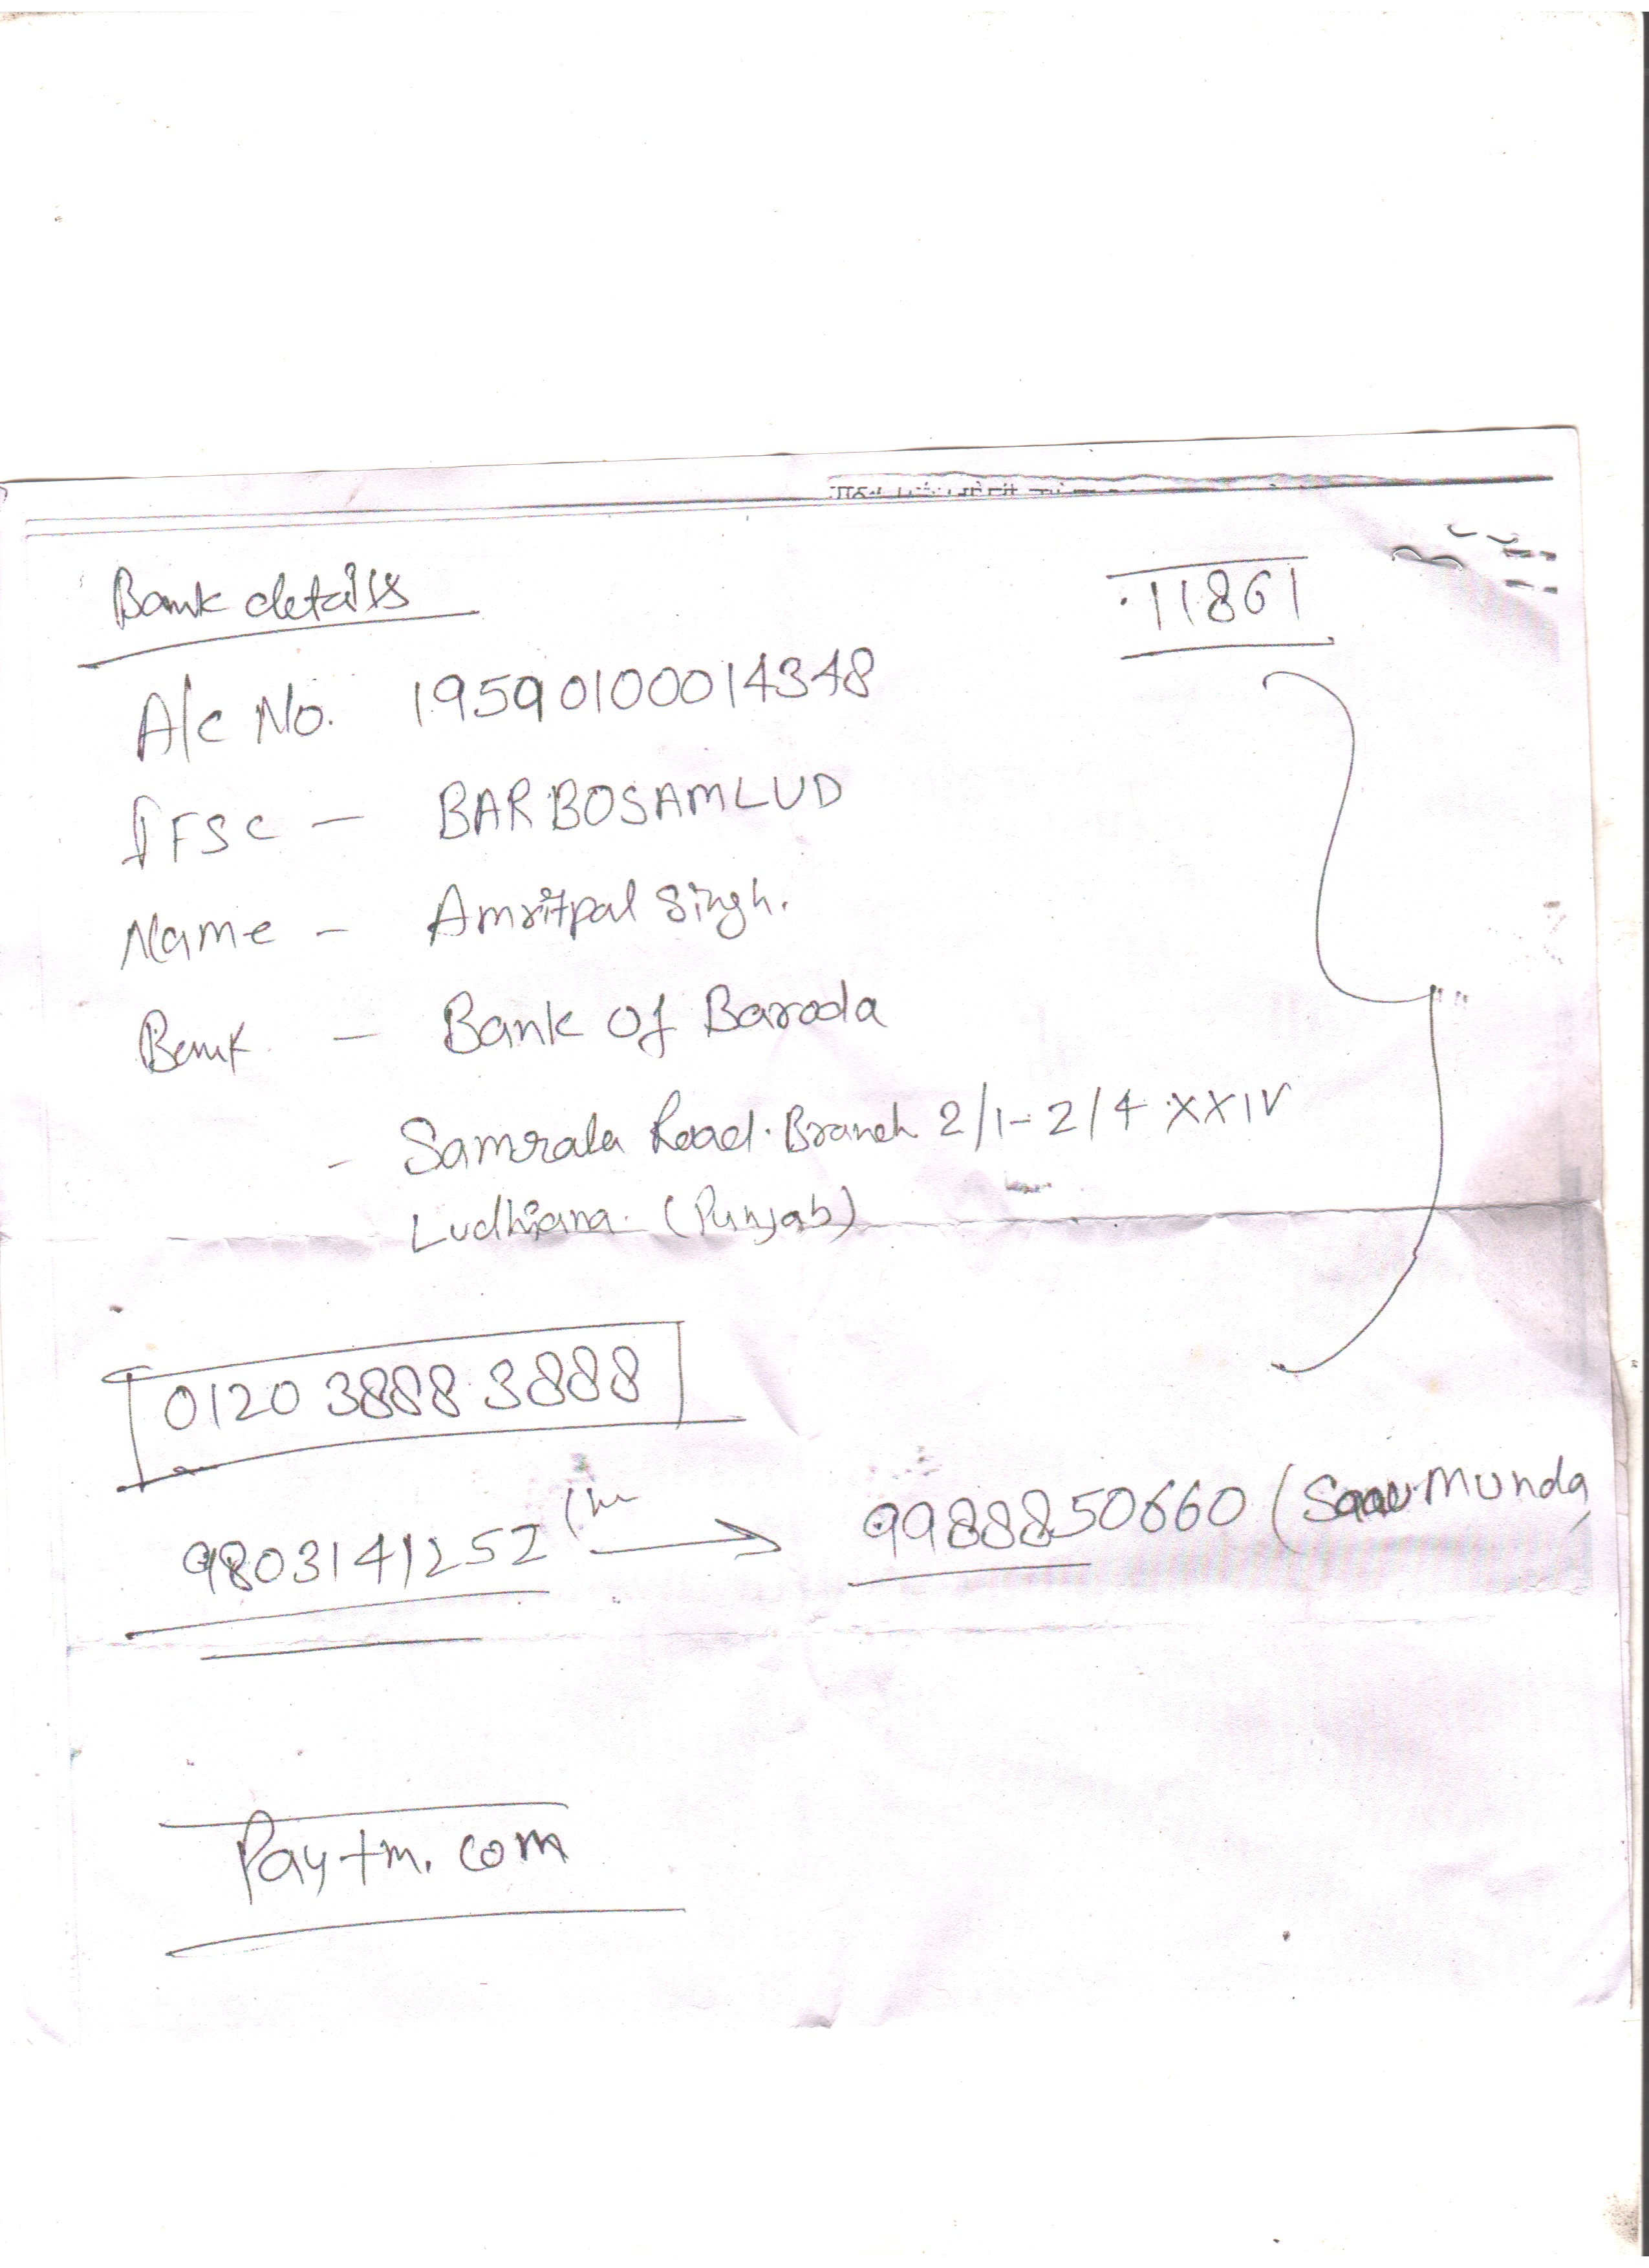 Bank details
11861
A/c No. 19590100014348
IFSC - BARBOSAMLUD
Name - Amritpal Singh.
Bank - Bank Of Baroda
- Samrala Road. Branch 2/1-2/4 XXIV
Ludhiana. (Punjab)
0120 3888 3888
9803141252 → 9988850660 ( Munda
Paytm.com